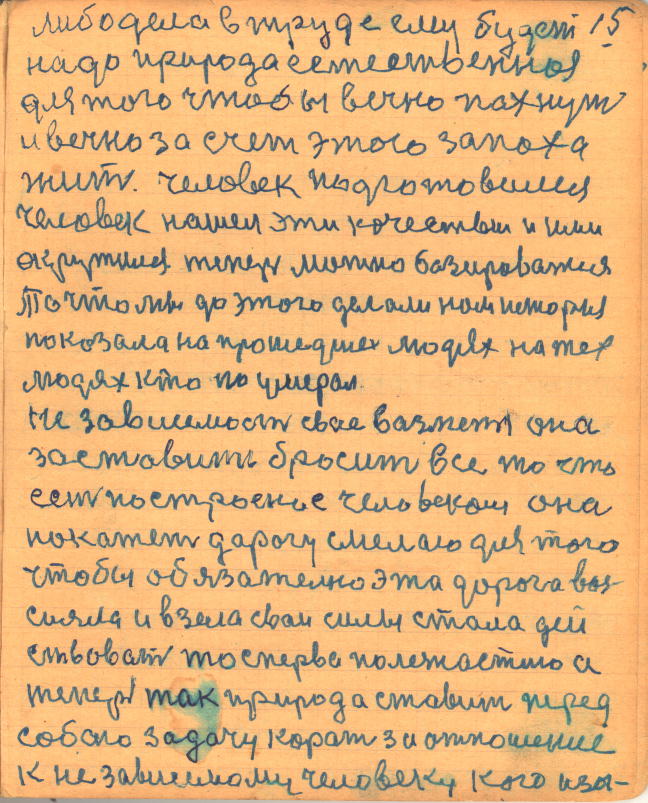 либо дела в труде ему будет 15
надо природа естественноя
для того чтобы вечно пахнут
и вечно за счет этого запоха
жит. человек подготовился
человек нашел эти качествы и ими
окружился теперь можно базироватся
то что мы до этого делали нам история
показала на прошедших людях на тех
людях кто по умерал.
Не зависимост свое вазмет она
заставит бросит все то что
ест построение человеком она
покажет дорогу смелаю для того
чтобы обязателно эта дорога вос-
сияла и взела сваи силы стала дей
ствоват то сперва полежастию а
теперь так природа ставит перед
собою задачу корат за отношение
к не зависимому человеку кого изы-